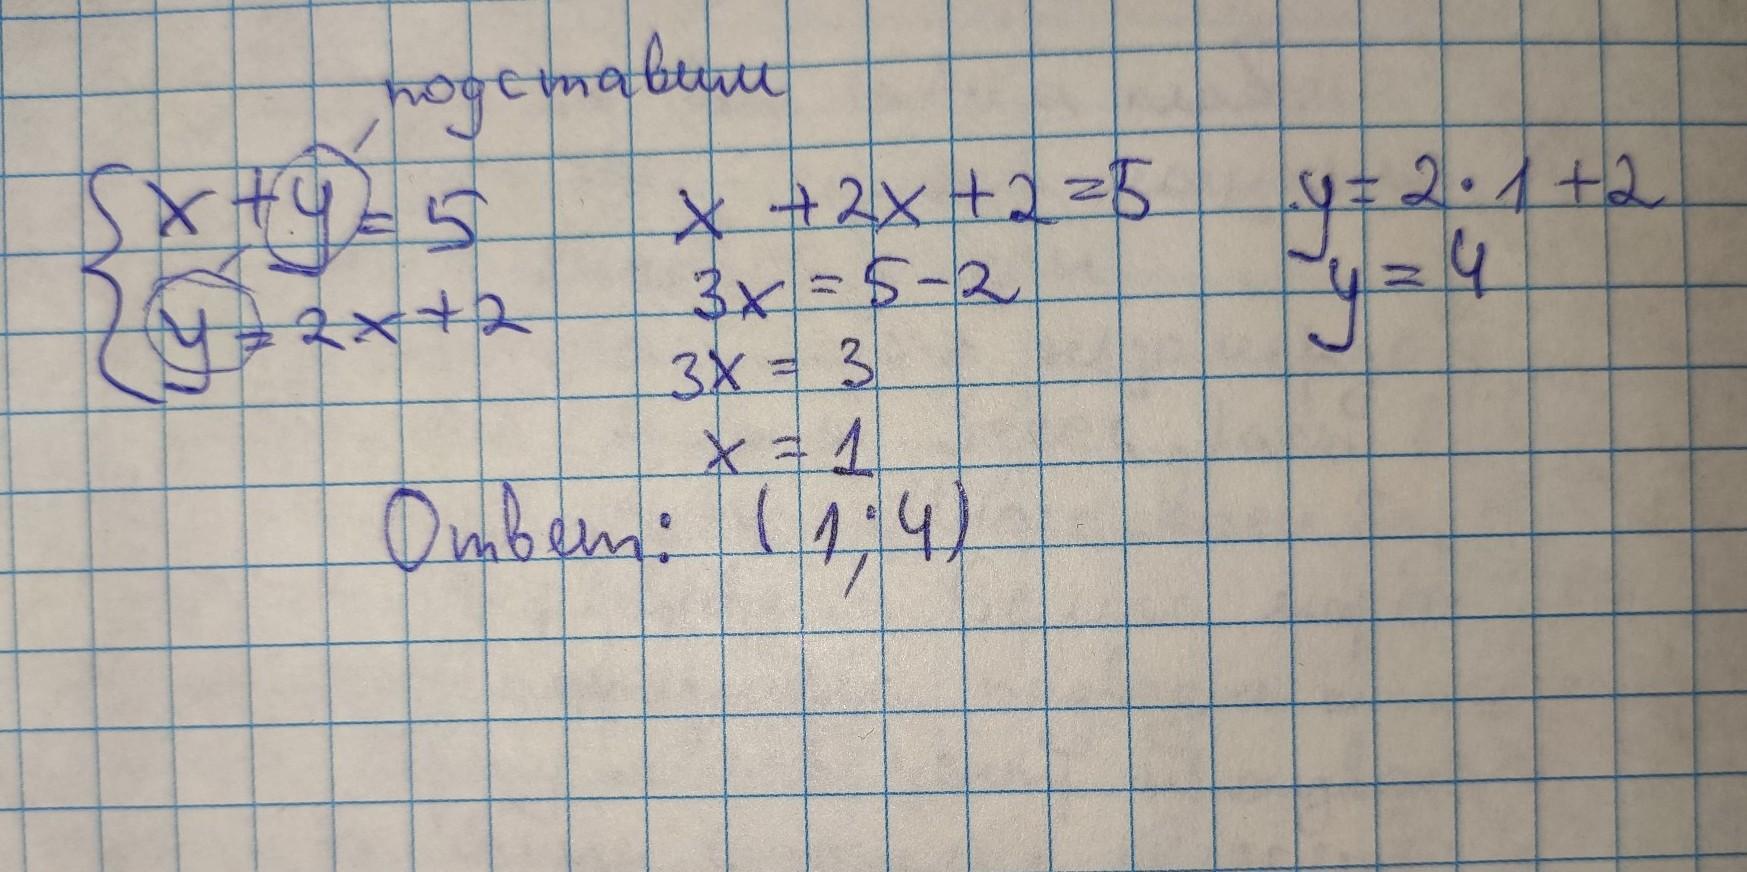 подставим
x + y = 5
y = 2x + 2
x + 2x + 2 = 5
3x = 5 - 2
3x = 3
x = 1
y = 2 · 1 + 2
y = 4
Ответ: (1; 4)